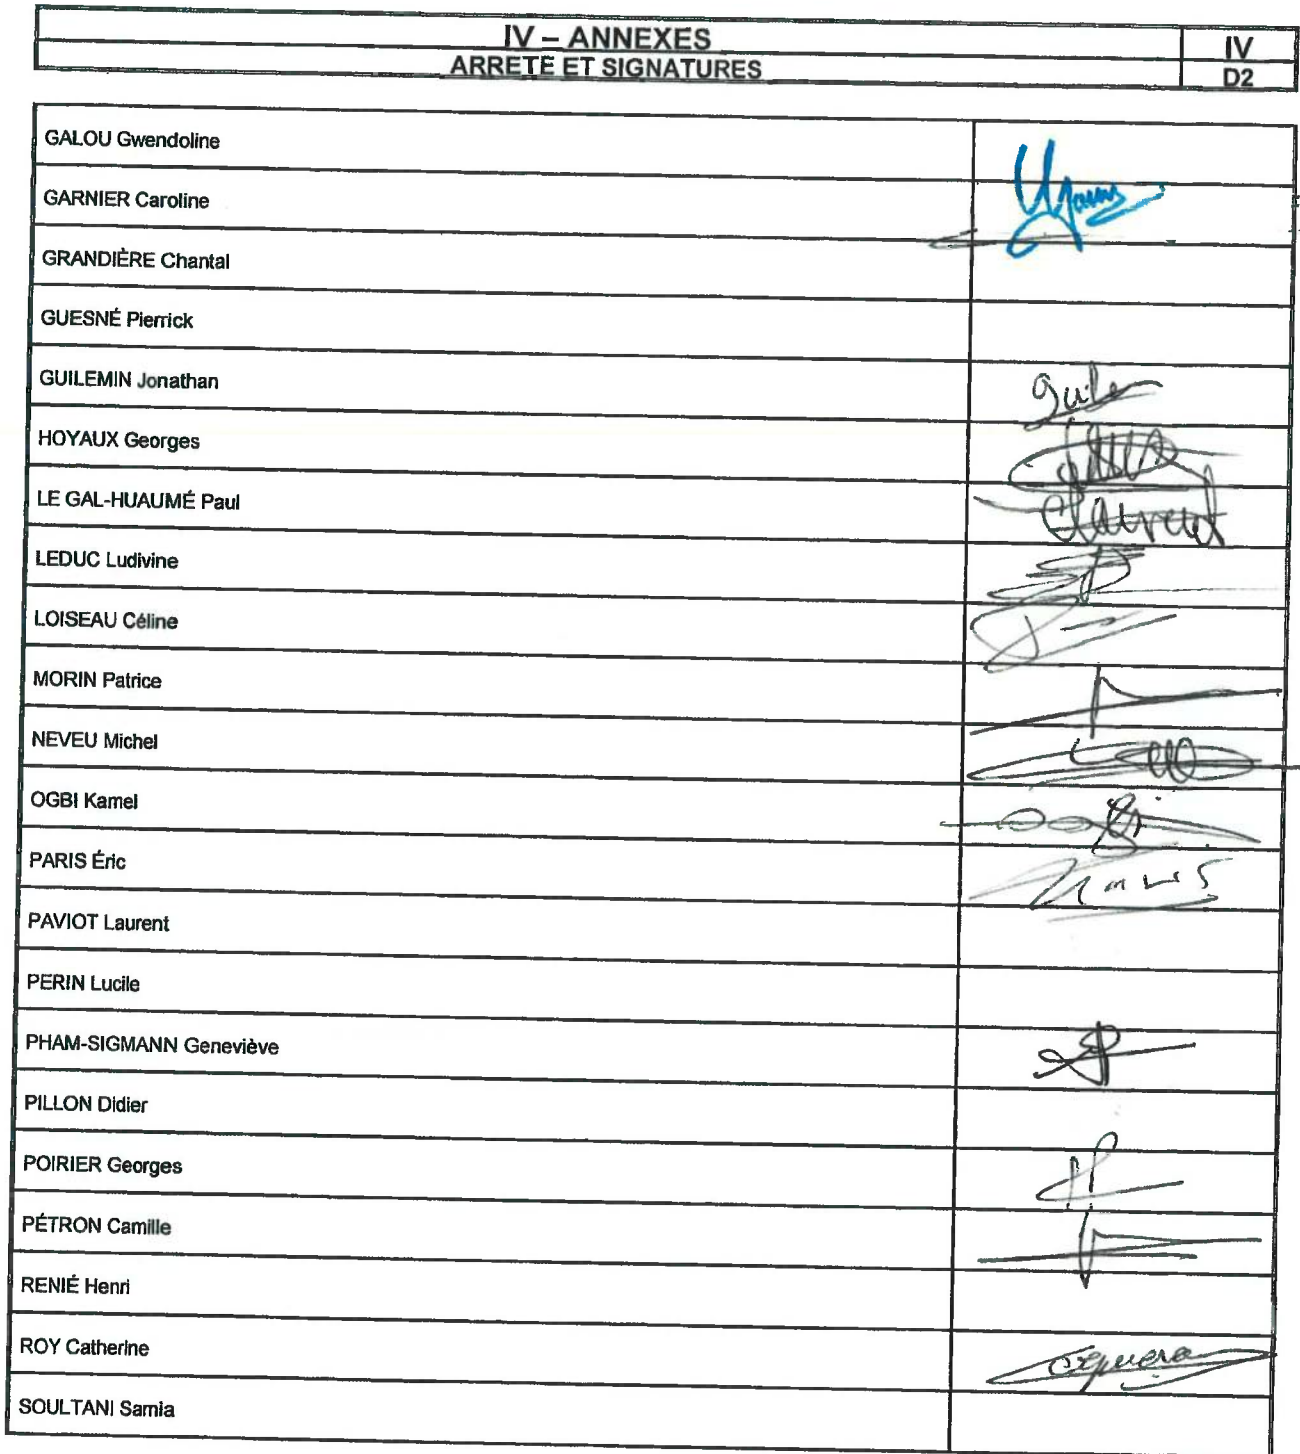 IV – ANNEXES
IV
ARRETE ET SIGNATURES
D2
GALOU Gwendoline
GARNIER Caroline
GRANDIÈRE Chantal
GUESNÉ Pierrick
GUILEMIN Jonathan
HOYAUX Georges
LE GAL-HUAUMÉ Paul
LEDUC Ludivine
LOISEAU Céline
MORIN Patrice
NEVEU Michel
OGBI Kamel
PARIS Éric
PAVIOT Laurent
PERIN Lucile
PHAM-SIGMANN Geneviève
PILLON Didier
POIRIER Georges
PÉTRON Camille
RENIÉ Henri
ROY Catherine
SOULTANI Samia